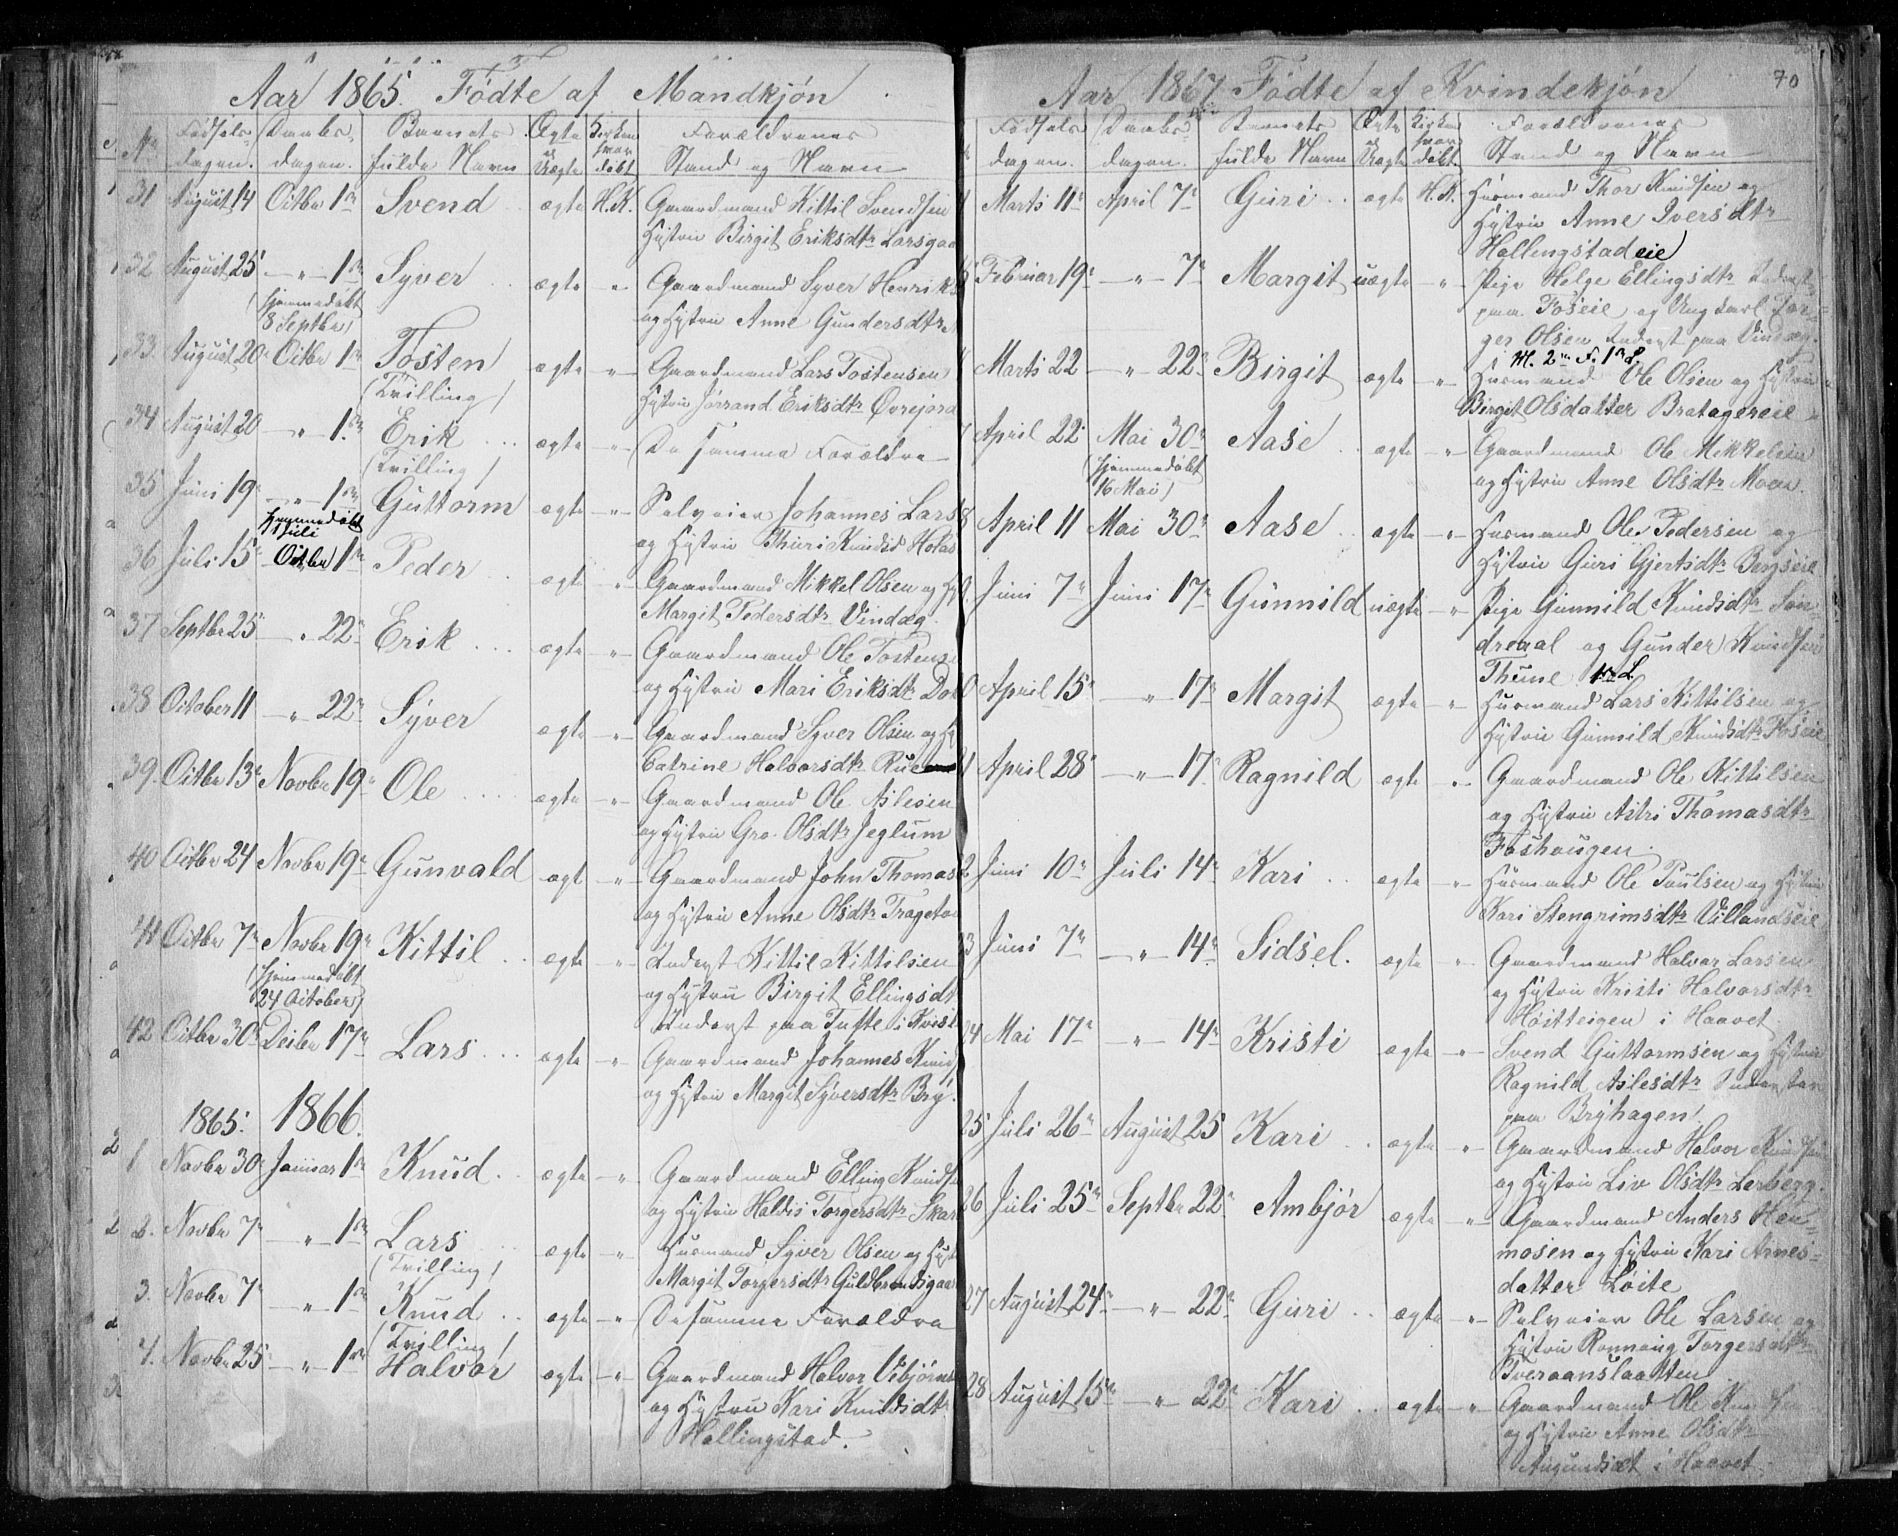 Aar 1865. Fødte af Mandkjøn
No Fødsels dagen. Daabs dagen. Barnets fulde Navn Ægte og Uægte Kirken hvor døbt Forældrenes Stand og Navn
31 August 14 Octbr 1ste Svend ægte H.K. Gaardmand Kittil Svendsen
Hustru Birgit Eriksdtr Larsgaa
32 August 25 — " — 1ste Syver ægte " Gaardmand Syver Henriks
(hjemmedøbt
8 Septbr) og Hustru Anne Gundersdtr
33 August 20 Octbr 1ste Tosten ægte " Gaardmand Lars Tostensen
(Tvilling) Hustru Jørrand Eriksdtr Øvrejord
34 August 20 — " — 1ste Erik ægte " De samme Forældre
(Tvilling)
35 Juni 19 — " — 1ste Guttorm ægte " Selveier Johannes Lars
hjemmedøbt
1 Juli og Hustru Thuri Knudsd Holas
36 Juli 15 Octbr 1ste Peder ægte " Gaardmand Mikkel Olsen og H
Margit Pedersdtr Vindæg.
37 Septbr 25 — " 22 Erik ægte " Gaardmand Ole Tostens
og Hustru Mari Eriksdtr Dok
38 October 11 — " 22 Syver ægte " Gaardmand Syver Olsen og H
Catrine Halvorsdtr Rue
39. Octbr 13 Novbr 19 Ole ægte " Gaardmand Ole Aslesen
og Hustru Gro Olsdtr Jeglum
40 Octbr 24 Novbr 19 Gunvald ægt " Gaardmand John Thomas
og Hustru Anne Olsdtr Trageton
41 Octbr 7 Novbr 19 Kittil ægte " Inderst Kittil Kittilsen
(hjemmedøbt
24 October) og Hustru Birgit Ellingsdt
Inderst paa Tufte i Kvisl
42 Octbr 30 Decbr 17 Lars ægte " Gaardmand Johannes Knud
og Hustru Margit Syversdtr Bry.
1865. 1866.
1 Novbr 30 Januar 1ste Knud ægte " Gaardmand Elling Knuds
og Hustru Haldis Torgersdtr Skar
2. Novbr 7 — " — 1ste Lars ægte " Husmand Syver Olsen og Hust
(Tvilling) Margit Torgersdtr Guldbrandsgaar
3. Novbr 7 — " — 1ste Knud ægte " De samme Forældre
(Tvilling)
4. Novbr 25 — " — 1ste Halvor ægte " Gaardmand Halvor Vebjørns
og Hustru Kari Knudsdtr
Hallingstad.
70
Aar 1867 Fødte af Kvindekjøn
Fødsels dagen. Daabs dagen. Barnets fulde Navn Ægte og Uægte Kirken hvor døbt Forældrenes Stand og Navn
Marts 11 April 7 Guri ægte H.K. Husmand Thor Knudsen og
Hustru Anne Iversdtr
Hallingstadeie
Februar 19 — " — 7 Margit uægte " Pige Helge Ellingsdtr Inderst
paa Foseie og Ungkarl Tor-
ger Olsen Inderst paa Vindæg.
M. 2 F. 1 L.
Marts 22 — " 22 Birgit ægte " Husmand Ole Olsen og Hustru
Birgit Olsdatter Bratagereie
April 22 Mai 30 Aase ægte " Gaardmand Ole Mikkelsen
(hjemmedøbt
16 Mai) og Hustru Anne Olsdtr Moen.
8 April 11 Mai 30 Aase ægte " Husmand Ole Pedersen og
Hustru Guri Gjertsdtr Bergseie
9. Juni 7 Juni 17 Gunnild uægte " Pige Gunnild Knudsdtr Søn
dreaal og Gunder Knudsen
Thune 1ste L
0 April 15 — " — 17 Margit ægte " Husmand Lars Kittilsen og
Hustru Gunnild Knudsdtr Foseie
1 April 28 — " — 17 Ragnild ægte " Gaardmand Ole Kittilsen
og Hustru Astri Thomasdtr
Foshougen.
2 Juni 10 Juli 14 Kari ægte " Husmand Ole Paulsen og Hustru
Kari Stengrimsdtr Villandseie
3 Juni 7 — " — 14 Sidsel. ægte " Gaardmand Halvor Larsen
og Hustru Kristi Halvorsdtr
Hoitteigen i Haavet
24 Mai 17 — " — 14 Kristi ægte " Svend Guttormsen og Hustru
Ragnild Aslesdtr Inderster
paa Bryhagen
25 Juli 26 August 25 Kari ægte " Gaardmand Halvor Knudsen
og Hustru Liv Olsdtr Lerberg.
26 Juli 25 Septbr 22 Ambjør ægte " Gaardmand Anders Hen-
mosen og Hustru Kari Arnes-
datter Loite
27 August 24 — " — 22 Guri ægte " Selveier Ole Larsen og
Hustru Rønnaug Torgersdtr
Tveraanslaatten
28 August 15 — " — 22 Kari ægte " Gaardmand Ole
og Hustru Anne Olsdtr
Augundsæt i Haavet.